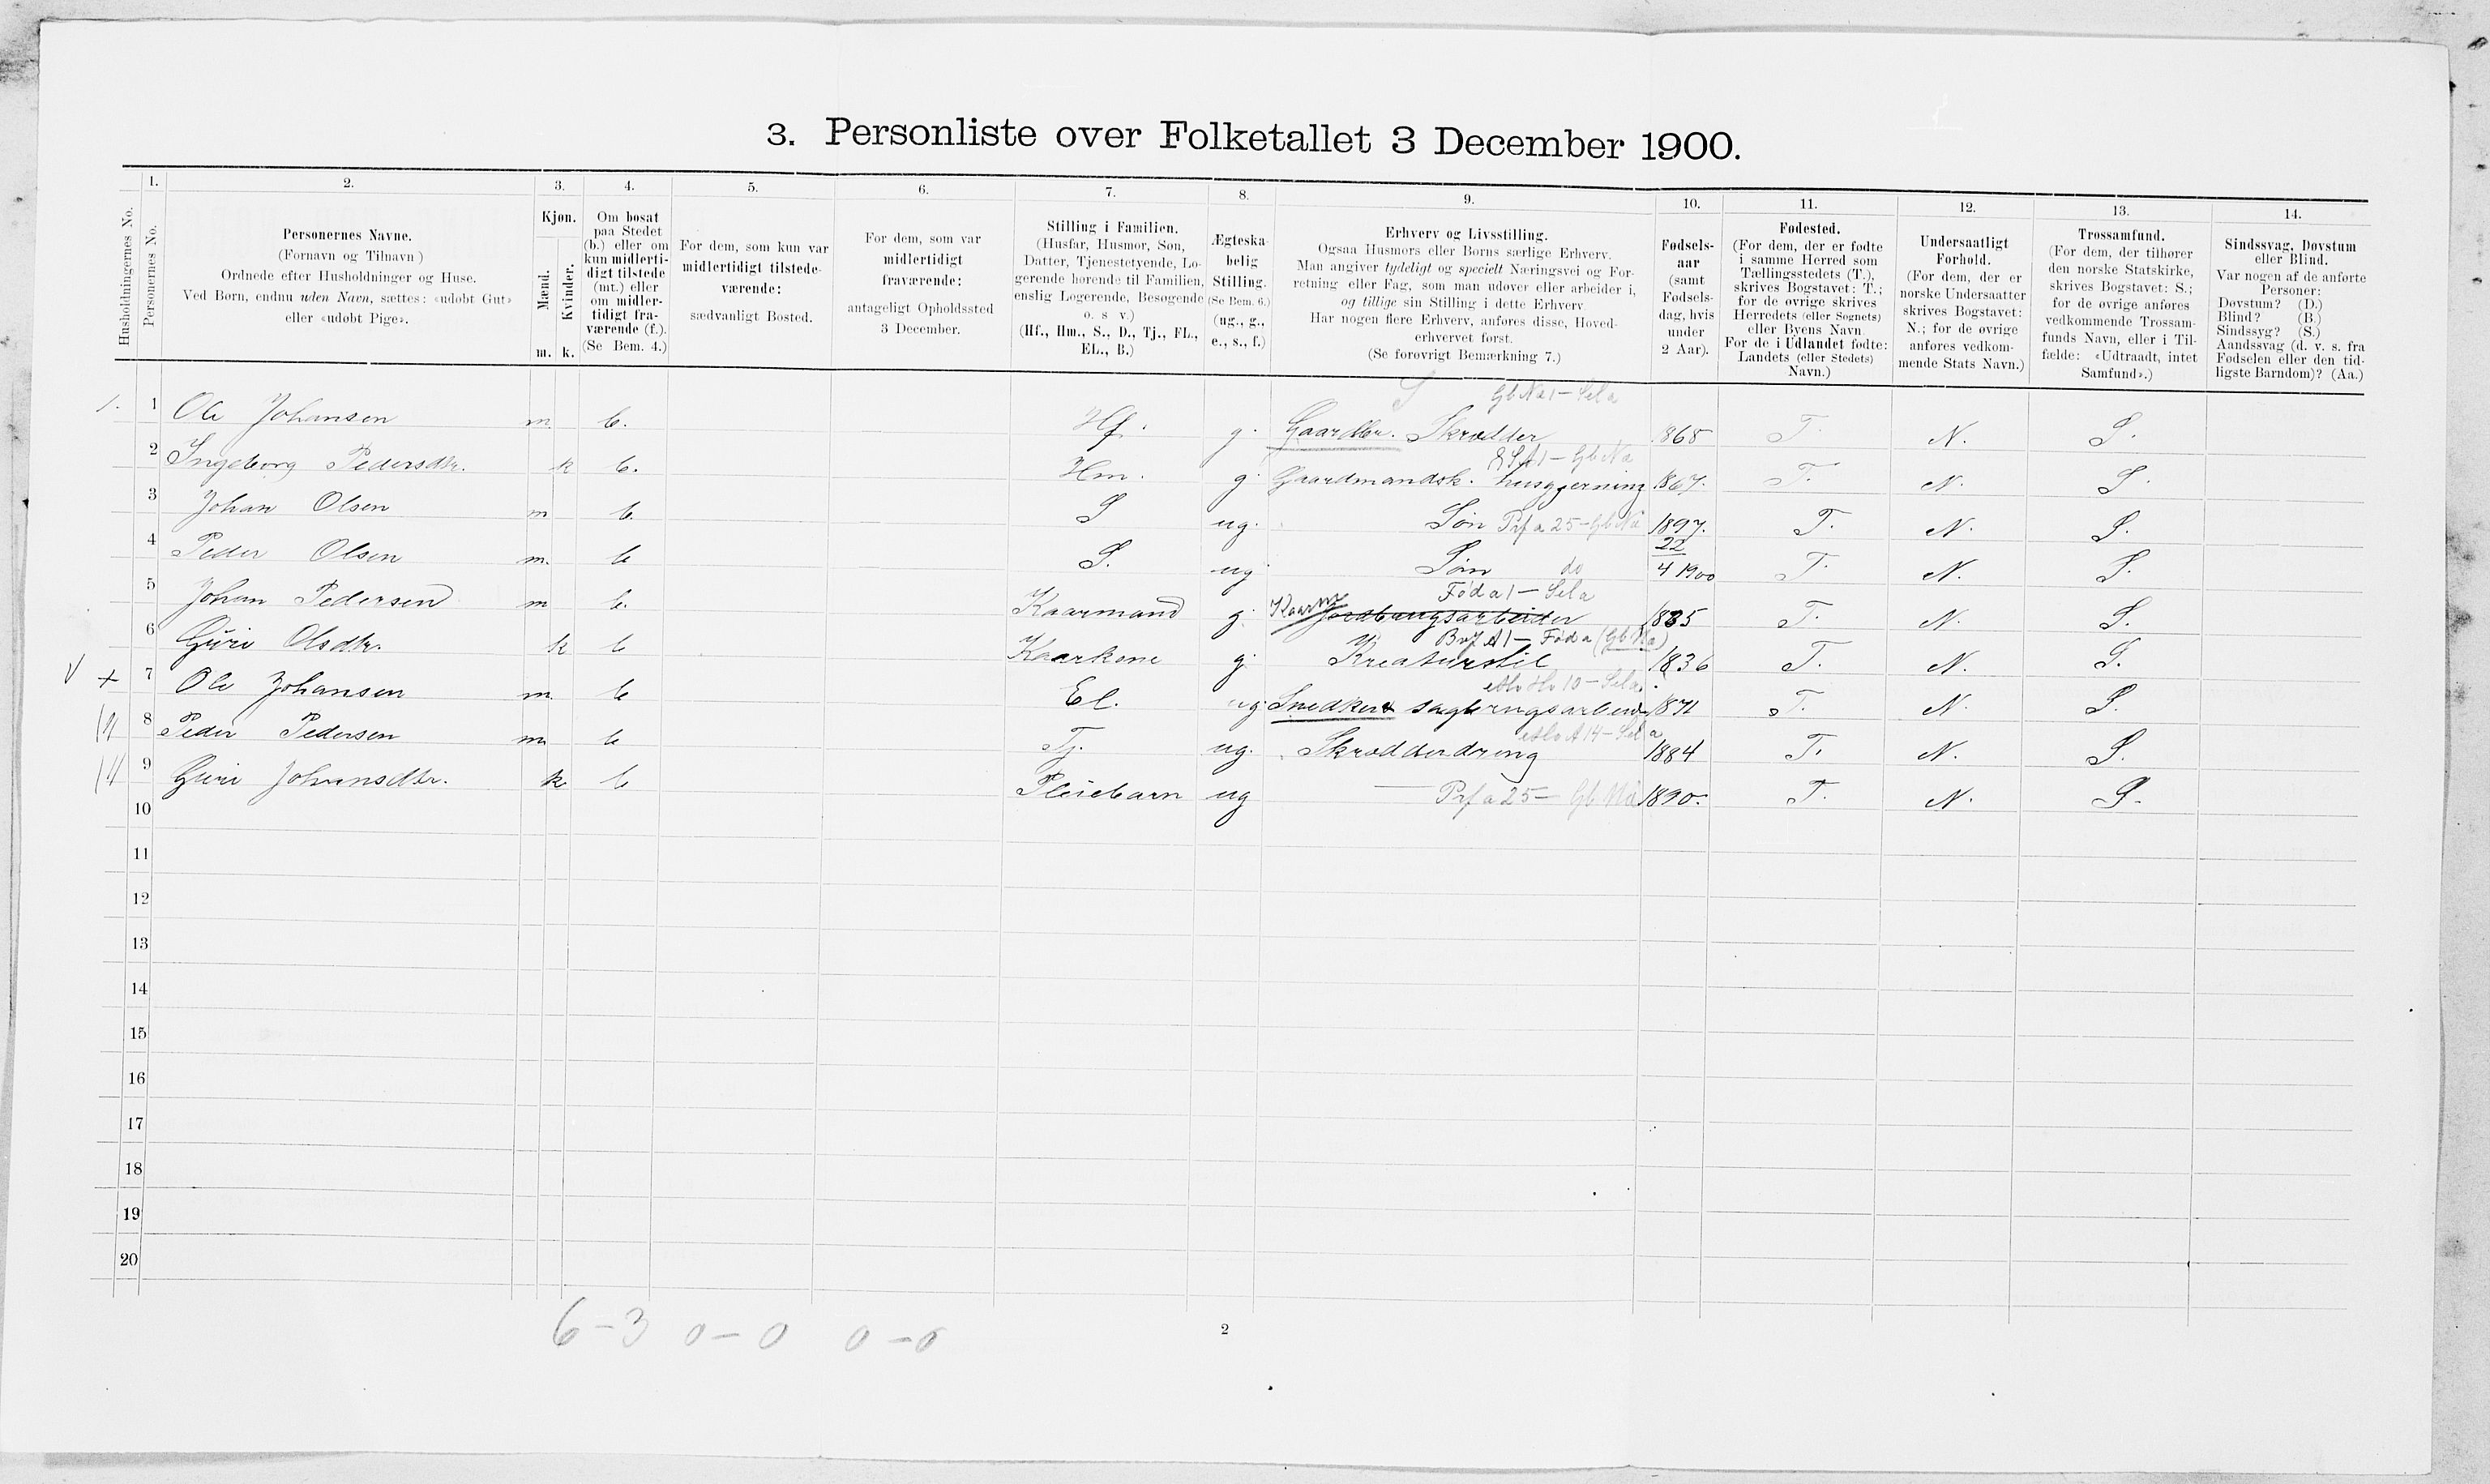 3. Personliste over Folketallet 3 December 1900.
1. 2. 3. 4. 5. 6. 7. 8. 9. 10. 11. 12. 13. 14.
Husholdningernes No.
Personernes No.
Personernes Navne.
(Fornavn og Tilnavn )
Ordnede efter Husholdninger og Huse.
Ved Børn, endnu uden Navn, sættes: «udøbt Gut»
eller «udøbt Pige».
Kjøn.
Mænd.
Kvinder.
m. k.
Om bosat
paa Stedet
(b.) eller om
kun midlerti-
digt tilstede
(mt.) eller
om midler-
tidigt fra-
værende (f.).
(Se Bem. 4.)
For dem, som kun var
midlertidigt tilstede-
værende:
sædvanligt Bosted.
For dem, som var
midlertidigt
fraværende:
antageligt Opholdssted
3 December.
Stilling i Familien.
(Husfar, Husmor, Søn,
Datter, Tjenestetyende, Lo-
gerende hørende til Familien,
enslig Logerende, Besøgende
o. s v.)
(Hf., Hm., S., D., Tj., FL.,
EL., B.)
Ægteska-
belig
Stilling.
(Se Bem. 6.)
(ug., g.,
e., s., f.)
Erhverv og Livsstilling.
Ogsaa Husmors eller Børns særlige Erhverv.
Man angiver tydeligt og specielt Næringsvei og For-
retning eller Fag, som man udøver eller arbeider i,
og tillige sin Stilling i dette Erhverv.
Har nogen flere Erhverv, anføres disse, Hoved-
erhvervet først.
(Se forøvrigt Bemærkning 7.)
Fødsels-
aar
(samt
Fødsels-
dag, hvis
under
2 Aar).
Fødested.
(For dem, der er fødte
i samme Herred som
Tællingsstedets (T.),
skrives Bogstavet: T.;
for de øvrige skrives
Herredets (eller Sognets)
eller Byens Navn
For de i Udlandet fødte:
Landets (eller Stedets)
Navn.)
Undersaatligt
Forhold.
(For dem, der er
norske Undersaatter
skrives Bogstavet:
N.; for de øvrige
anføres vedkom-
mende Stats Navn.)
Trossamfund.
(For dem, der tilhører
den norske Statskirke,
skrives Bogstavet: S.;
for de øvrige anføres
vedkommende Trossam-
funds Navn, eller i Til-
fælde: «Udtraadt, intet
Samfund».)
Sindssvag, Døvstum
eller Blind.
Var nogen af de anførte
Personer:
Døvstum? (D.)
Blind? (B.)
Sindssyg? (S.)
Aandssvag (d. v. s. fra
Fødselen eller den tid-
ligste Barndom)? (Aa.)
S Gb Na 1 - Sela
1. 1 Ole Johansen m. b. Hf. g. Gaardbr. Skrædder 1868 T. N. S.
2 Ingeborg Pedersdtr. k b. Hm. g. Gaardmandsk. husgjerning 1867. T. N. S.
3 Johan Olsen m b. S ug. Søn Prf a 25 - Gb Na 1897. T. N. S.
4 Peder Olsen m. b S. ug Søn do 22/4 1900 T. N. S.
Fød a 1 - Sela
5 Johan Pedersen m b. Kaarmand g. Kaarm Jordbrugsarbeider 1835 T. N. S.
Fød a (Gb Na)
6 Guri Olsdtr. k b Kaarkone g. Kreaturstel 1836 T. N. S.
V + 7 Ole Johansen m. b El. ug. Snedker & sagbrugsarbeid. 1871 T. N. S.
8 Peder Pedersen m b Tj. ug. Skrædderdreng 1884 T. N. S.
9 Guri Johansdtr. k b Pleiebarn ug — Prf a 25 - Gb Na 1890. T. N. S.
10
11
12
13
14
15
16
17
18
19
20
6 - 3 0 - 0 0 - 0
2